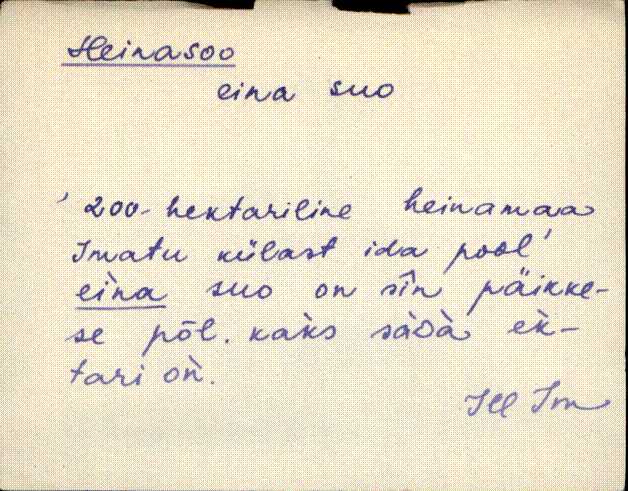 Heinasoo
eina suo
' 200-hektariline heinamaa
Imatu külast ida pool '
eìna suo on sîn päikke-
se põl. kaks sàDà èk-
tari òǹ.
Ill Im